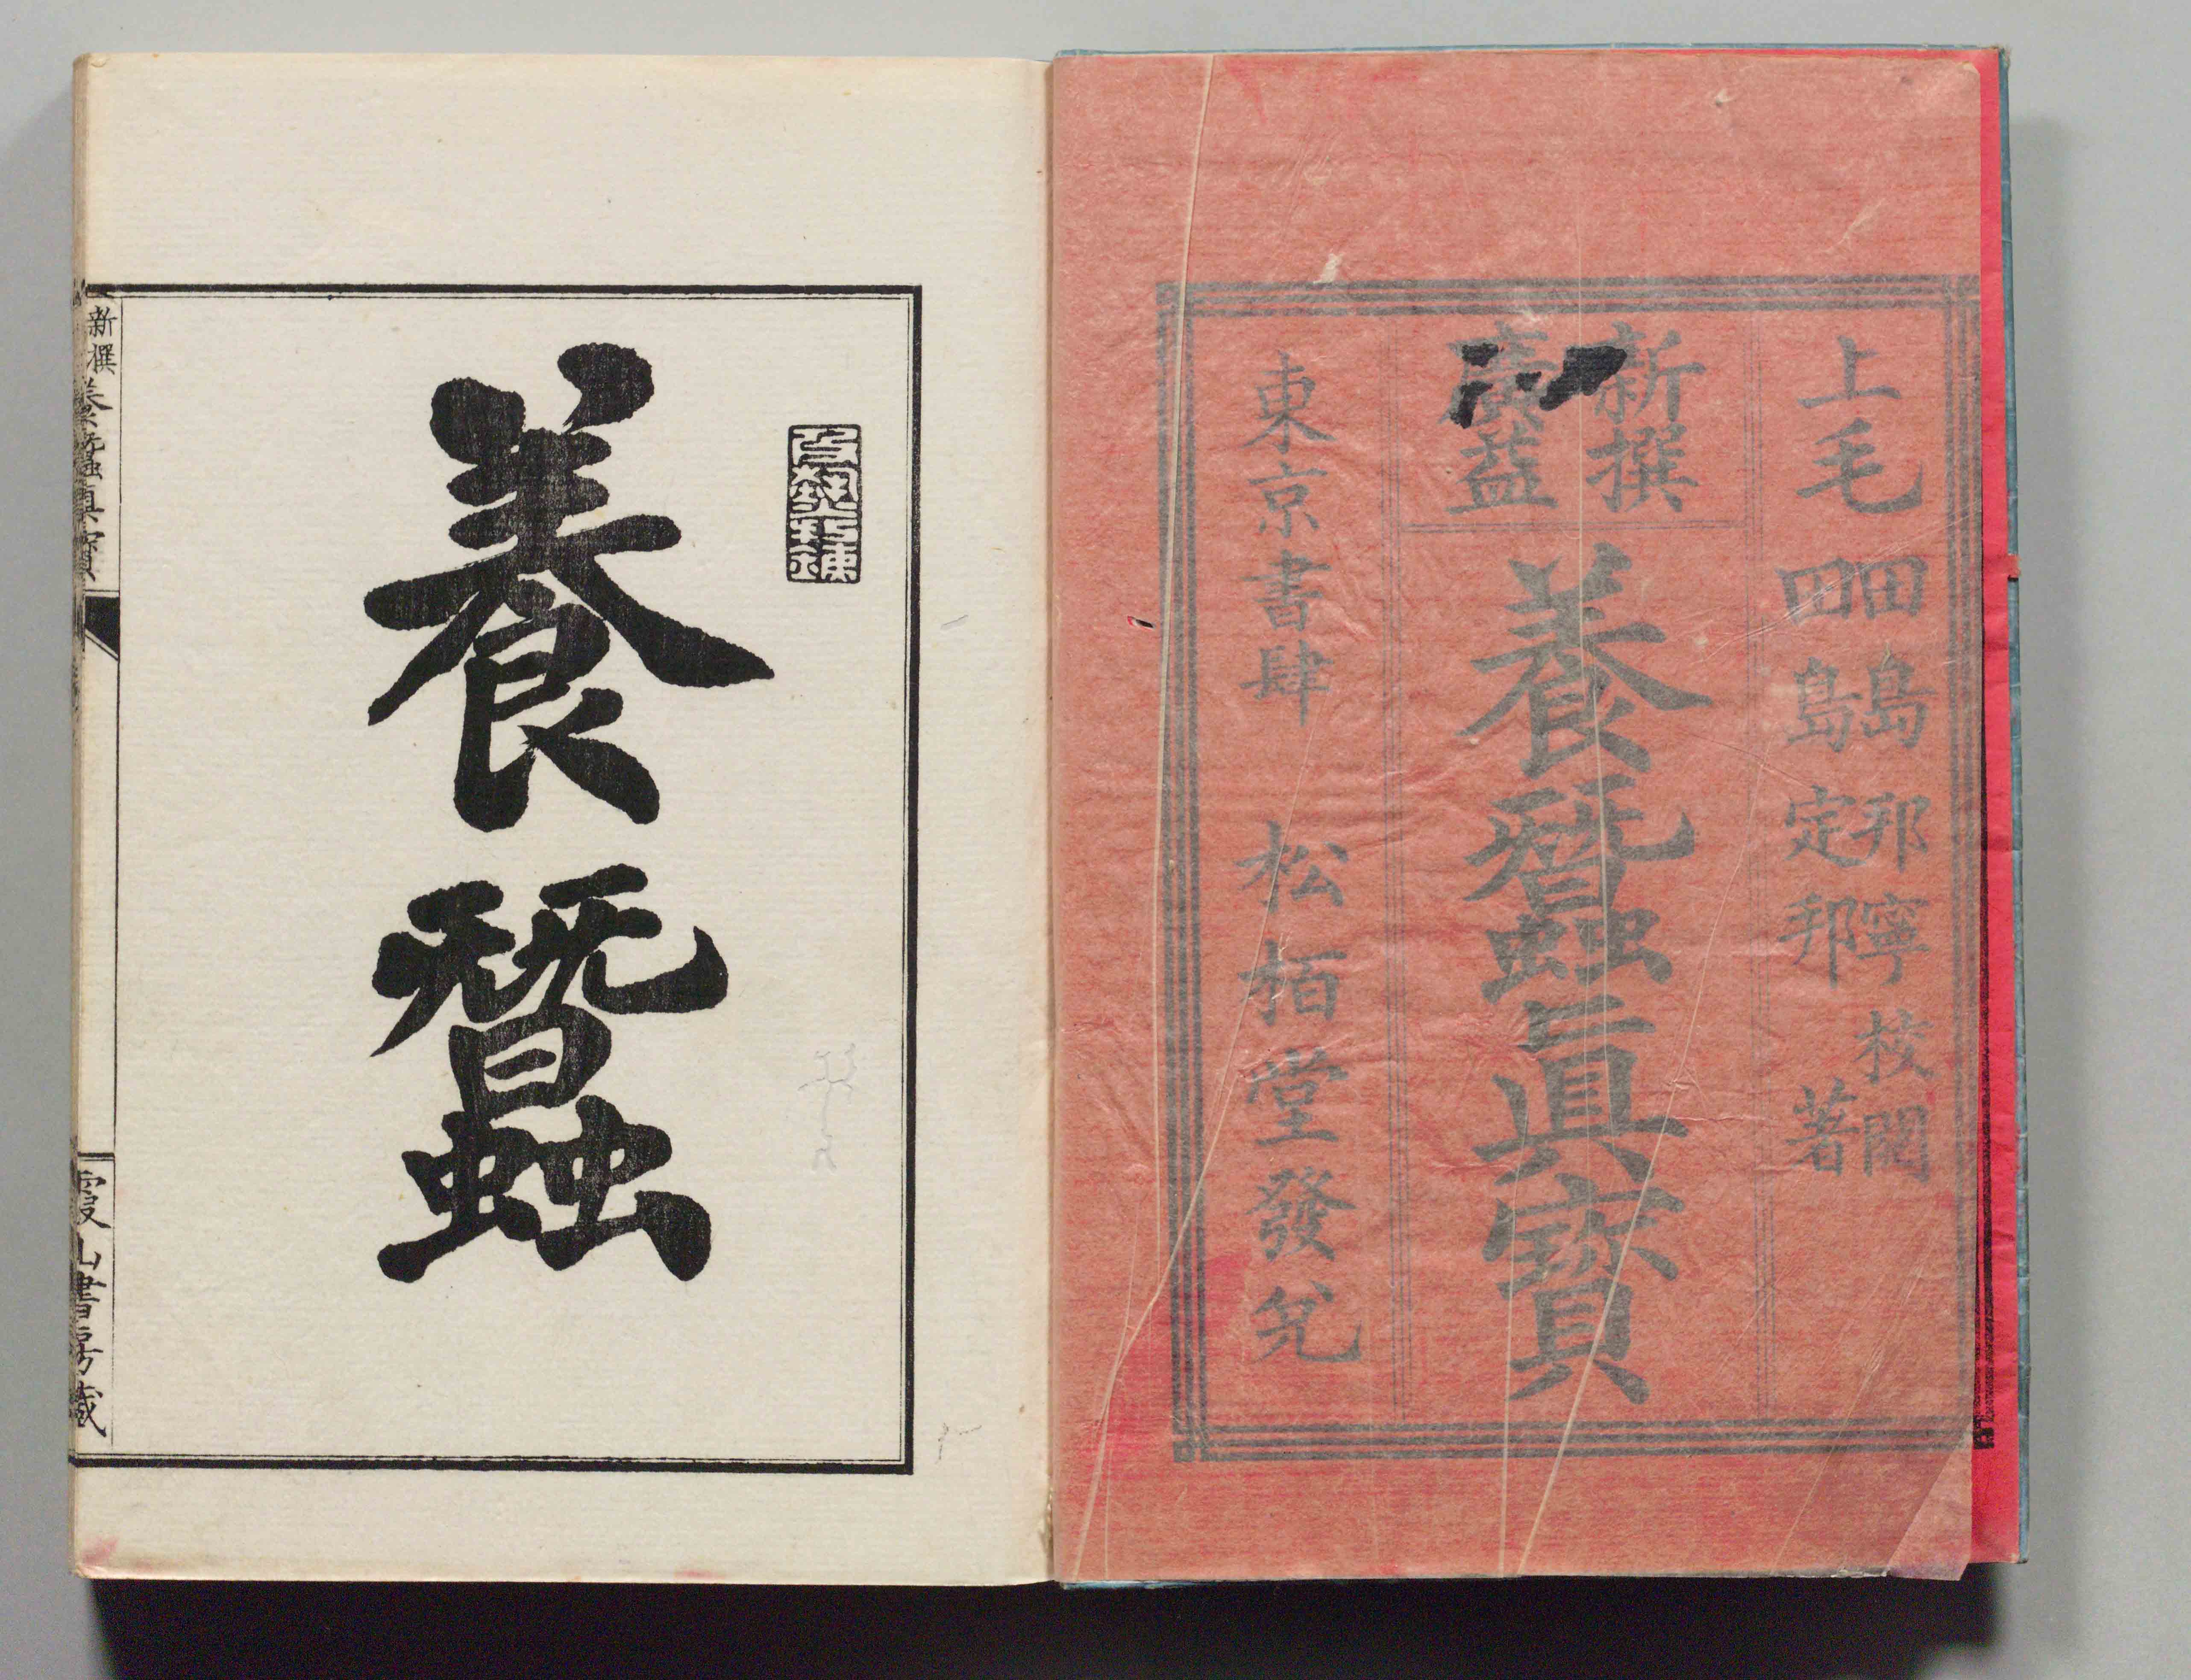 上毛
田島邦寧校閲
田島定邦著
新撰
廣益
養蠶眞寶
東京書肆 松栢堂發兌
養蠶
新撰養蠶眞寶
霞山書房藏